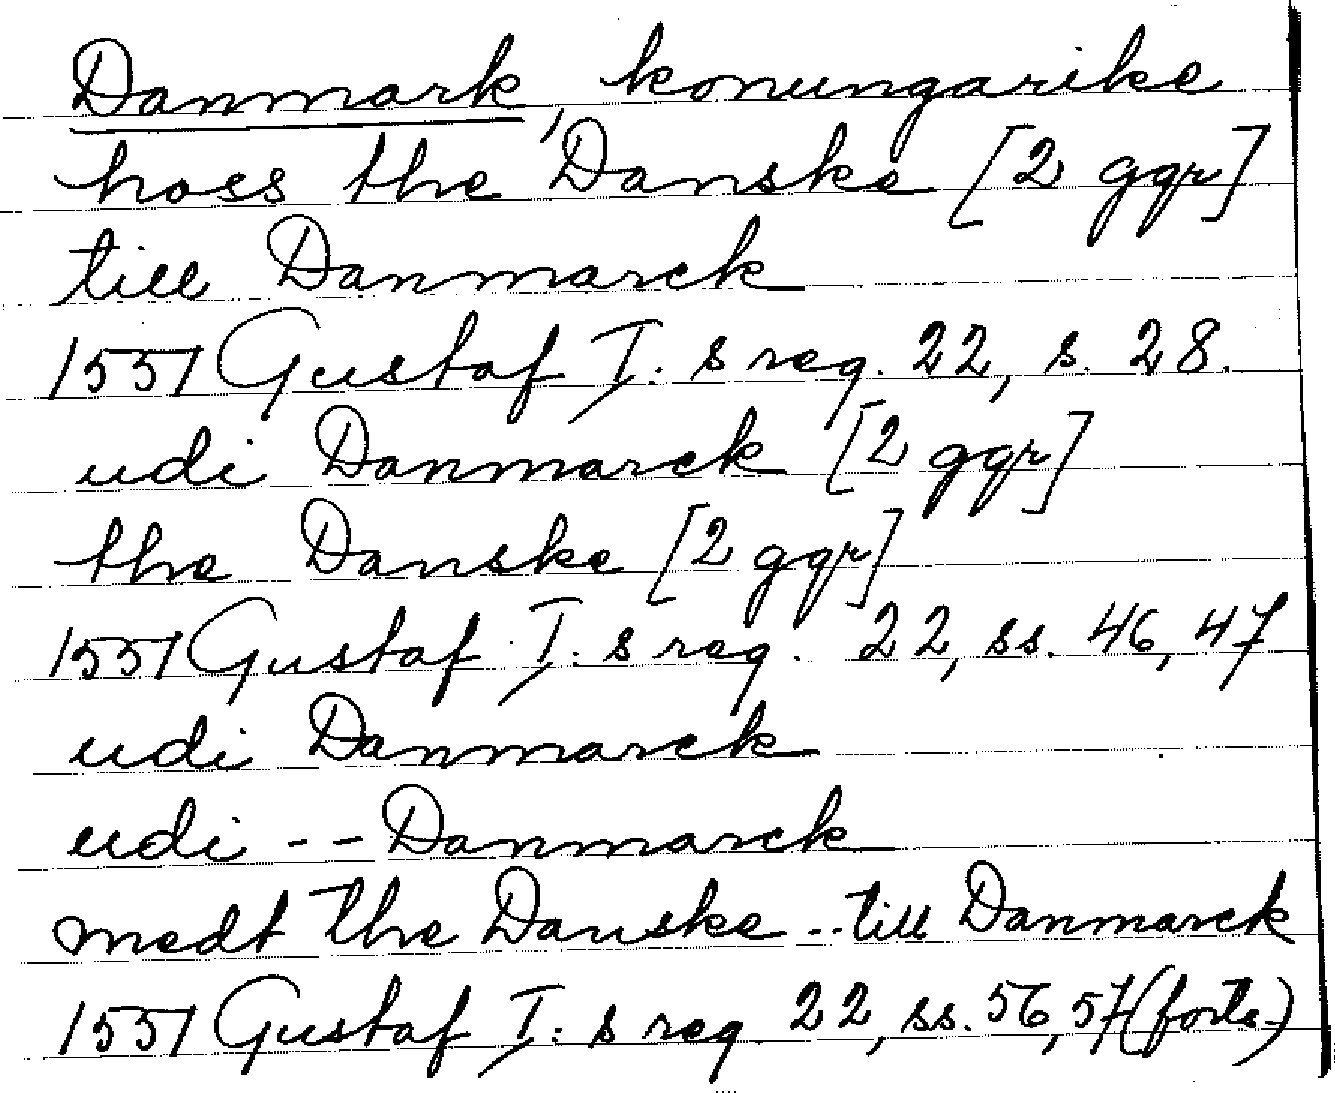 Danmark, konungarike
hoss the Danske [2 ggr]
till Danmarck
1551 Gustaf I:s reg. 22, s. 28.
udi Danmarck [2 ggr]
the Danske [2 ggr]
1551 Gustaf I:s reg. 22, ss. 46, 47
udi Danmarck
udi -- Danmarck
medt the Danske -- till Danmarck
1551 Gustaf I:s reg 22, ss. 56, 57 (forts.)